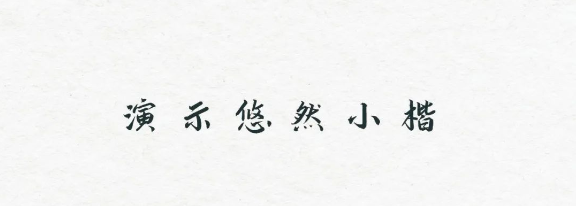 演示悠然小楷